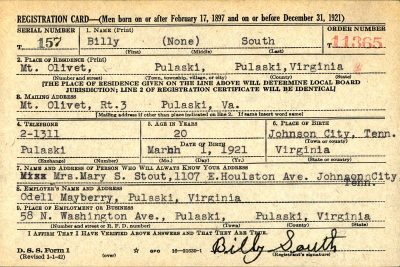 REGISTRATION CARD—(Men born on or after February 17, 1897 and on or before December 31, 1921)
SERIAL NUMBER 1. NAME (Print) ORDER NUMBER
T 157 Billy (None) South 11365
(First) (Middle) (Last)
2. PLACE OF RESIDENCE (Print)
Mt. Olivet, Pulaski, Pulaski, Virginia
(Number and street) (Town, township, village, or city) (County) (State)
[THE PLACE OF RESIDENCE GIVEN ON THE LINE ABOVE WILL DETERMINE LOCAL BOARD
JURISDICTION; LINE 2 OF REGISTRATION CERTIFICATE WILL BE IDENTICAL]
3. MAILING ADDRESS
Mt. Olivet, Rt.3 Pulaski, Va.
[Mailing address if other than place indicated on line 2. If same insert word same]
4. TELEPHONE 5. AGE IN YEARS 6. PLACE OF BIRTH
2-1311 20 Johnson City, Tenn.
DATE OF BIRTH (Town or county)
Pulaski March 1, 1921 Virginia
(Exchange) (Number) (Mo.) (Day) (Yr.) (State or country)
7. NAME AND ADDRESS OF PERSON WHO WILL ALWAYS KNOW YOUR ADDRESS
Mrs. Mary S. Stout, 1107 E. Houlston Ave. Johnson City
Tenn.
8. EMPLOYER'S NAME AND ADDRESS
Odell Mayberry, Pulaski, Virginia
9. PLACE OF EMPLOYMENT OR BUSINESS
58 N. Washington Ave., Pulaski, Pulaski, Virginia
(Number and street or R. F. D. number) (Town) (County) (State)
I AFFIRM THAT I HAVE VERIFIED ABOVE ANSWERS AND THAT THEY ARE TRUE.
Billy South
D. S. S. Form 1
(Revised 1-1-42) (over) GPO 16-21630-1 (Registrant's signature)